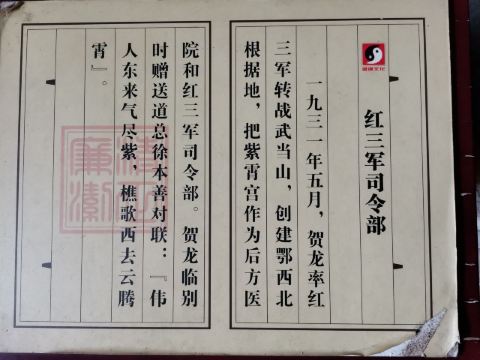 红三军司令部
一九三一年五月，贺龙率红
三军转战武当山，创建鄂西北
根据地，把紫霄宫作为后方医
院和红三军司令部。贺龙临别
时赠送道总徐本善对联：『伟
人东来气尽紫，樵歌西去云腾
霄』。
清
廉
潔